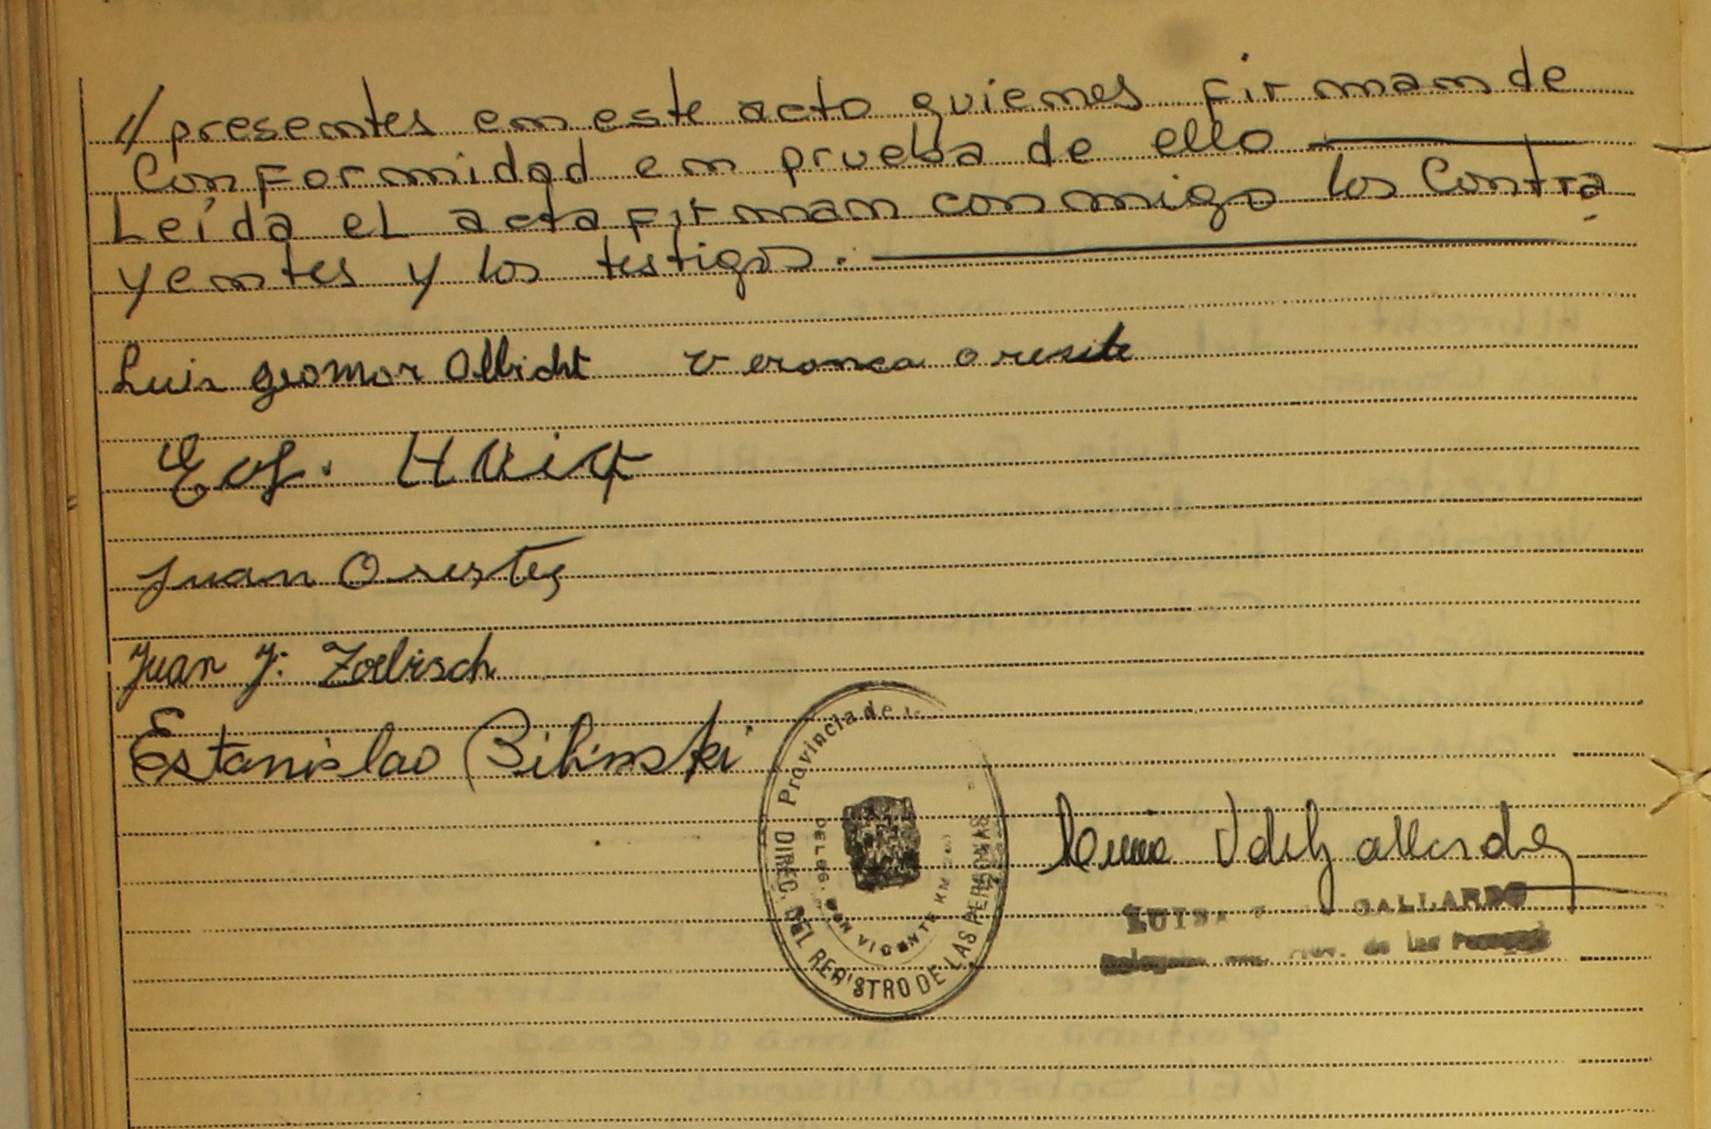 // presentes en este acto quienes firman de
Conformidad en prueba de ello
Leída el acta firman conmigo los Contra
yentes y los testigos.
Luis geomar Olbricht Veronca oreste
Juan Orestes
Juan J. Zoebisch
Estanislao Bilinski
Provincia de
DIREC. DEL REGISTRO DE LAS PERSONAS
DELEG. SAN VICENTE KM
LUISA GALLARDO
de las